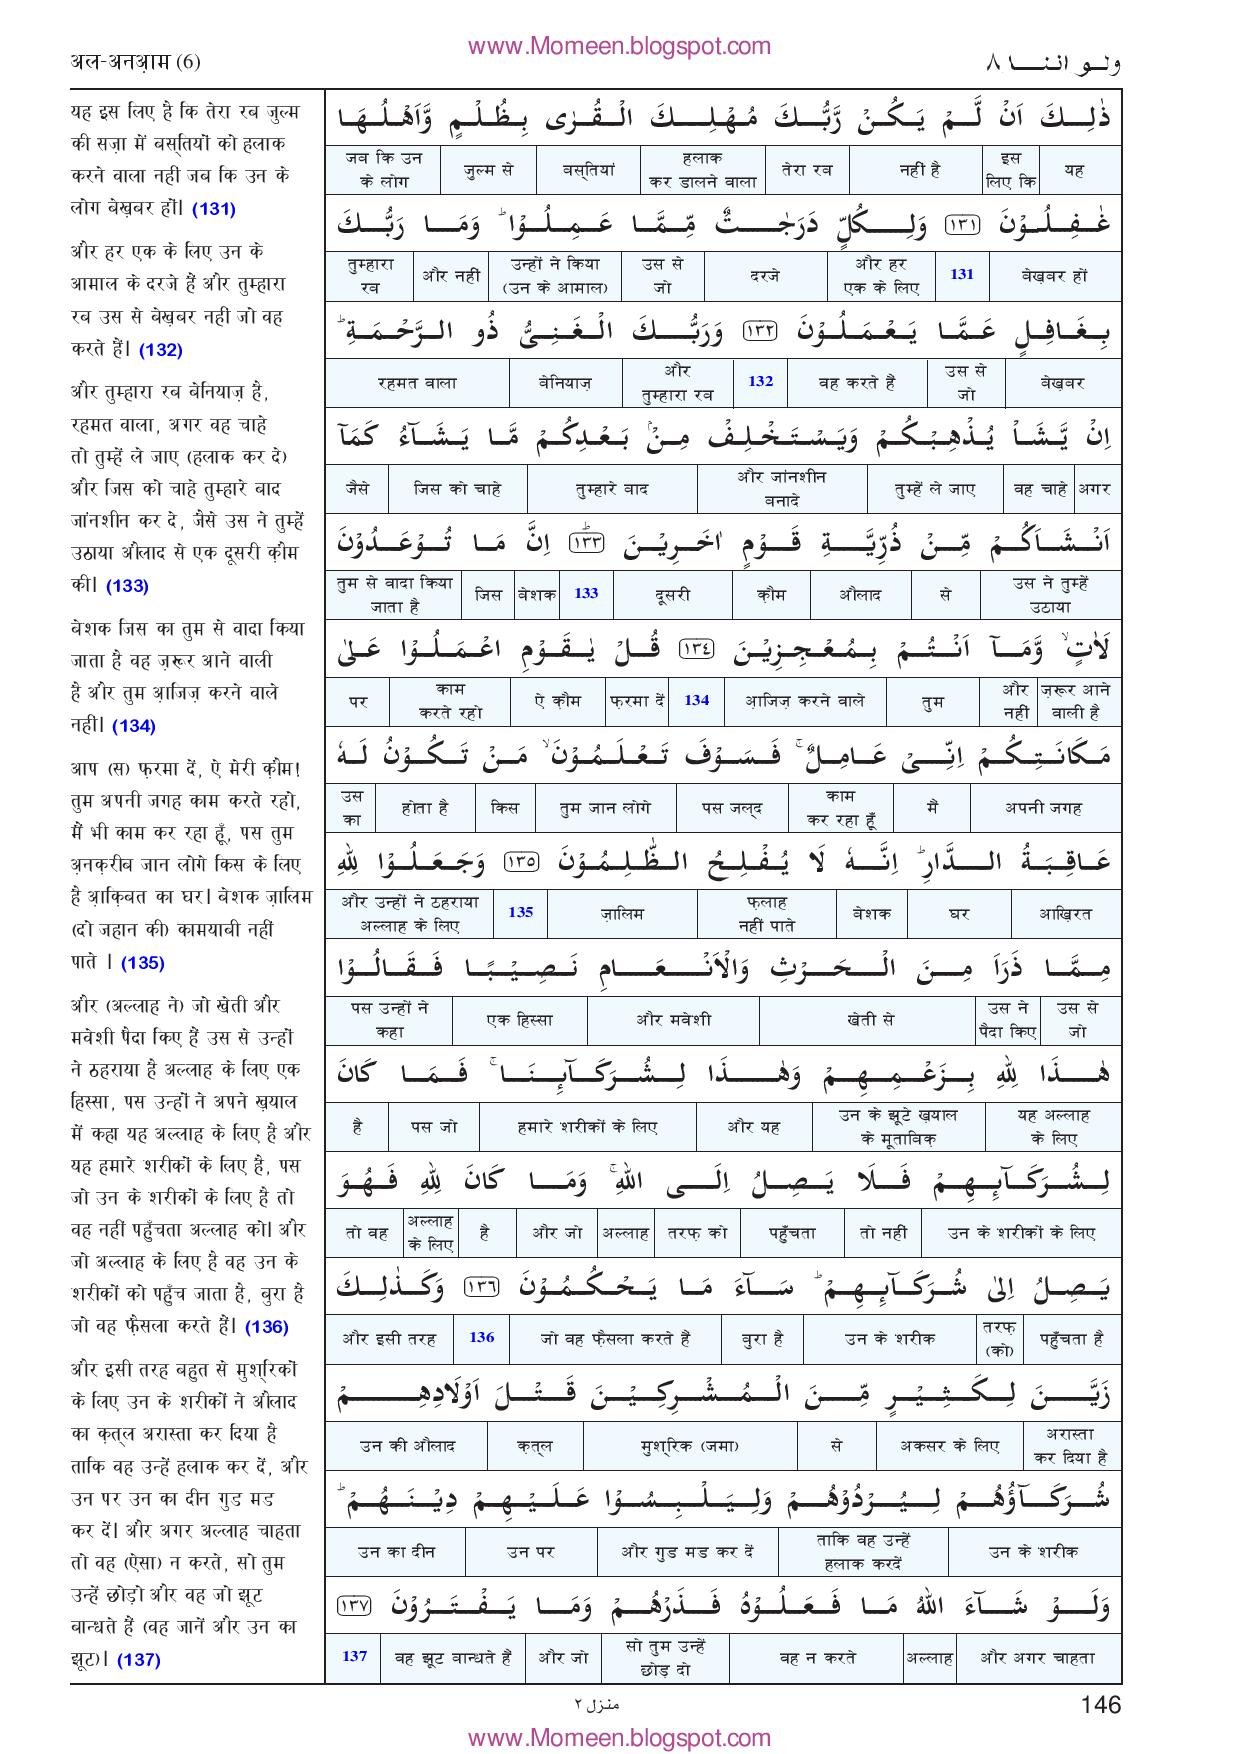 www.Momeen.blogspot.com
अल-अनआ़म (6)
ولو اننا ۸
यह इस लिए है कि तेरा रब जुल्म
की सज़ा में बस्तियों को हलाक
करने वाला नहीं जब कि उन के
लोग बेख़बर हों। (131)
और हर एक के लिए उन के
आमाल के दरजे हैं और तुम्हारा
रब उस से बेख़बर नहीं जो वह
करते हैं। (132)
और तुम्हारा रब बेनियाज़ है,
रहमत वाला, अगर वह चाहे
तो तुम्हें ले जाए (हलाक कर दे)
और जिस को चाहे तुम्हारे बाद
जांनशीन कर दे, जैसे उस ने तुम्हें
उठाया औलाद से एक दूसरी क़ौम
की। (133)
बेशक जिस का तुम से वादा किया
जाता है वह ज़रूर आने वाली
है और तुम आ़जिज़ करने वाले
नहीं। (134)
आप (स) फ़रमा दें, ऐ मेरी क़ौम!
तुम अपनी जगह काम करते रहो,
मैं भी काम कर रहा हूँ, पस तुम
अ़नक़रीब जान लोगे किस के लिए
है आ़क़िबत का घर। बेशक ज़ालिम
(दो जहान की) कामयाबी नहीं
पाते । (135)
और (अल्लाह ने) जो खेती और
मवेशी पैदा किए हैं उस से उन्हों
ने ठहराया है अल्लाह के लिए एक
हिस्सा, पस उन्हों ने अपने ख़याल
में कहा यह अल्लाह के लिए है और
यह हमारे शरीकों के लिए है, पस
जो उन के शरीकों के लिए है तो
वह नहीं पहुँचता अल्लाह को। और
जो अल्लाह के लिए है वह उन के
शरीकों को पहुँच जाता है, बुरा है
जो वह फ़ैसला करते हैं। (136)
और इसी तरह बहुत से मुश्रिकों
के लिए उन के शरीकों ने औलाद
का क़त्ल अरास्ता कर दिया है
ताकि वह उन्हें हलाक कर दें, और
उन पर उन का दीन गुड मड
कर दें। और अगर अल्लाह चाहता
तो वह (ऐसा) न करते, सो तुम
उन्हें छोड़ो और वह जो झूट
बान्धते हैं (वह जानें और उन का
झूट)। (137)
ذٰلِكَ اَنْ لَّمْ يَكُنْ رَّبُّكَ مُهْلِكَ الْقُرٰى بِظُلْمٍ وَّاَهْلُهَا
जब कि उन के लोग जुल्म से बस्तियां हलाक कर डालने वाला तेरा रब नहीं है इस लिए कि यह
غٰفِلُوْنَ ١٣١ وَلِكُلٍّ دَرَجٰتٌ مِّمَّا عَمِلُوْا ؕ وَمَا رَبُّكَ
तुम्हारा रब और नहीं उन्हों ने किया (उन के आमाल) उस से जो दरजे और हर एक के लिए 131 बेख़बर हों
بِغَافِلٍ عَمَّا يَعْمَلُوْنَ ١٣٢ وَرَبُّكَ الْغَنِىُّ ذُو الرَّحْمَةِ ؕ
रहमत वाला बेनियाज़ और तुम्हारा रब 132 वह करते हैं उस से जो बेख़बर
اِنْ يَّشَاْ يُذْهِبْكُمْ وَيَسْتَخْلِفْ مِنْۢ بَعْدِكُمْ مَّا يَشَآءُ كَمَآ
जैसे जिस को चाहे तुम्हारे बाद और जांनशीन बनादे तुम्हें ले जाए वह चाहे अगर
اَنْشَاَكُمْ مِّنْ ذُرِّيَّةِ قَوْمٍ اٰخَرِيْنَ ؕ ١٣٣ اِنَّ مَا تُوْعَدُوْنَ
तुम से वादा किया जाता है जिस बेशक 133 दूसरी क़ौम औलाद से उस ने तुम्हें उठाया
لَاٰتٍ ۙ وَّمَآ اَنْتُمْ بِمُعْجِزِيْنَ ١٣٤ قُلْ يٰقَوْمِ اعْمَلُوْا عَلٰى
पर काम करते रहो ऐ क़ौम फ़रमा दें 134 आ़जिज़ करने वाले तुम और नहीं ज़रूर आने वाली है
مَكَانَتِكُمْ اِنِّىْ عَامِلٌ ۚ فَسَوْفَ تَعْلَمُوْنَ ۙ مَنْ تَكُوْنُ لَهٗ
उस का होता है किस तुम जान लोगे पस जल्द काम कर रहा हूँ मैं अपनी जगह
عَاقِبَةُ الدَّارِ ؕ اِنَّهٗ لَا يُفْلِحُ الظّٰلِمُوْنَ ١٣٥ وَجَعَلُوْا لِلّٰهِ
और उन्हों ने ठहराया अल्लाह के लिए 135 ज़ालिम फ़लाह नहीं पाते बेशक घर आख़िरत
مِمَّا ذَرَاَ مِنَ الْحَرْثِ وَالْاَنْعَامِ نَصِيْبًا فَقَالُوْا
पस उन्हों ने कहा एक हिस्सा और मवेशी खेती से उस ने पैदा किए उस से जो
هٰذَا لِلّٰهِ بِزَعْمِهِمْ وَهٰذَا لِشُرَكَآئِنَا ۚ فَمَا كَانَ
है पस जो हमारे शरीकों के लिए और यह उन के झूटे ख़याल के मूताबिक़ यह अल्लाह के लिए
لِشُرَكَآئِهِمْ فَلَا يَصِلُ اِلَى اللّٰهِ ۚ وَمَا كَانَ لِلّٰهِ فَهُوَ
तो वह अल्लाह के लिए है और जो अल्लाह तरफ़ को पहुँचता तो नहीं उन के शरीकों के लिए
يَصِلُ اِلٰى شُرَكَآئِهِمْ ؕ سَآءَ مَا يَحْكُمُوْنَ ١٣٦ وَكَذٰلِكَ
और इसी तरह 136 जो वह फ़ैसला करते हैं बुरा है उन के शरीक तरफ़ (को) पहुँचता है
زَيَّنَ لِكَثِيْرٍ مِّنَ الْمُشْرِكِيْنَ قَتْلَ اَوْلَادِهِمْ
उन की औलाद क़त्ल मुश्रिक (जमा) से अकसर के लिए अरास्ता कर दिया है
شُرَكَآؤُهُمْ لِيُرْدُوْهُمْ وَلِيَلْبِسُوْا عَلَيْهِمْ دِيْنَهُمْ ؕ
उन का दीन उन पर और गुड मड कर दें ताकि वह उन्हें हलाक करदें उन के शरीक
وَلَوْ شَآءَ اللّٰهُ مَا فَعَلُوْهُ فَذَرْهُمْ وَمَا يَفْتَرُوْنَ ١٣٧
137 वह झूट बान्धते हैं और जो सो तुम उन्हें छोड़ दो वह न करते अल्लाह और अगर चाहता
منزل ۲
146
www.Momeen.blogspot.com